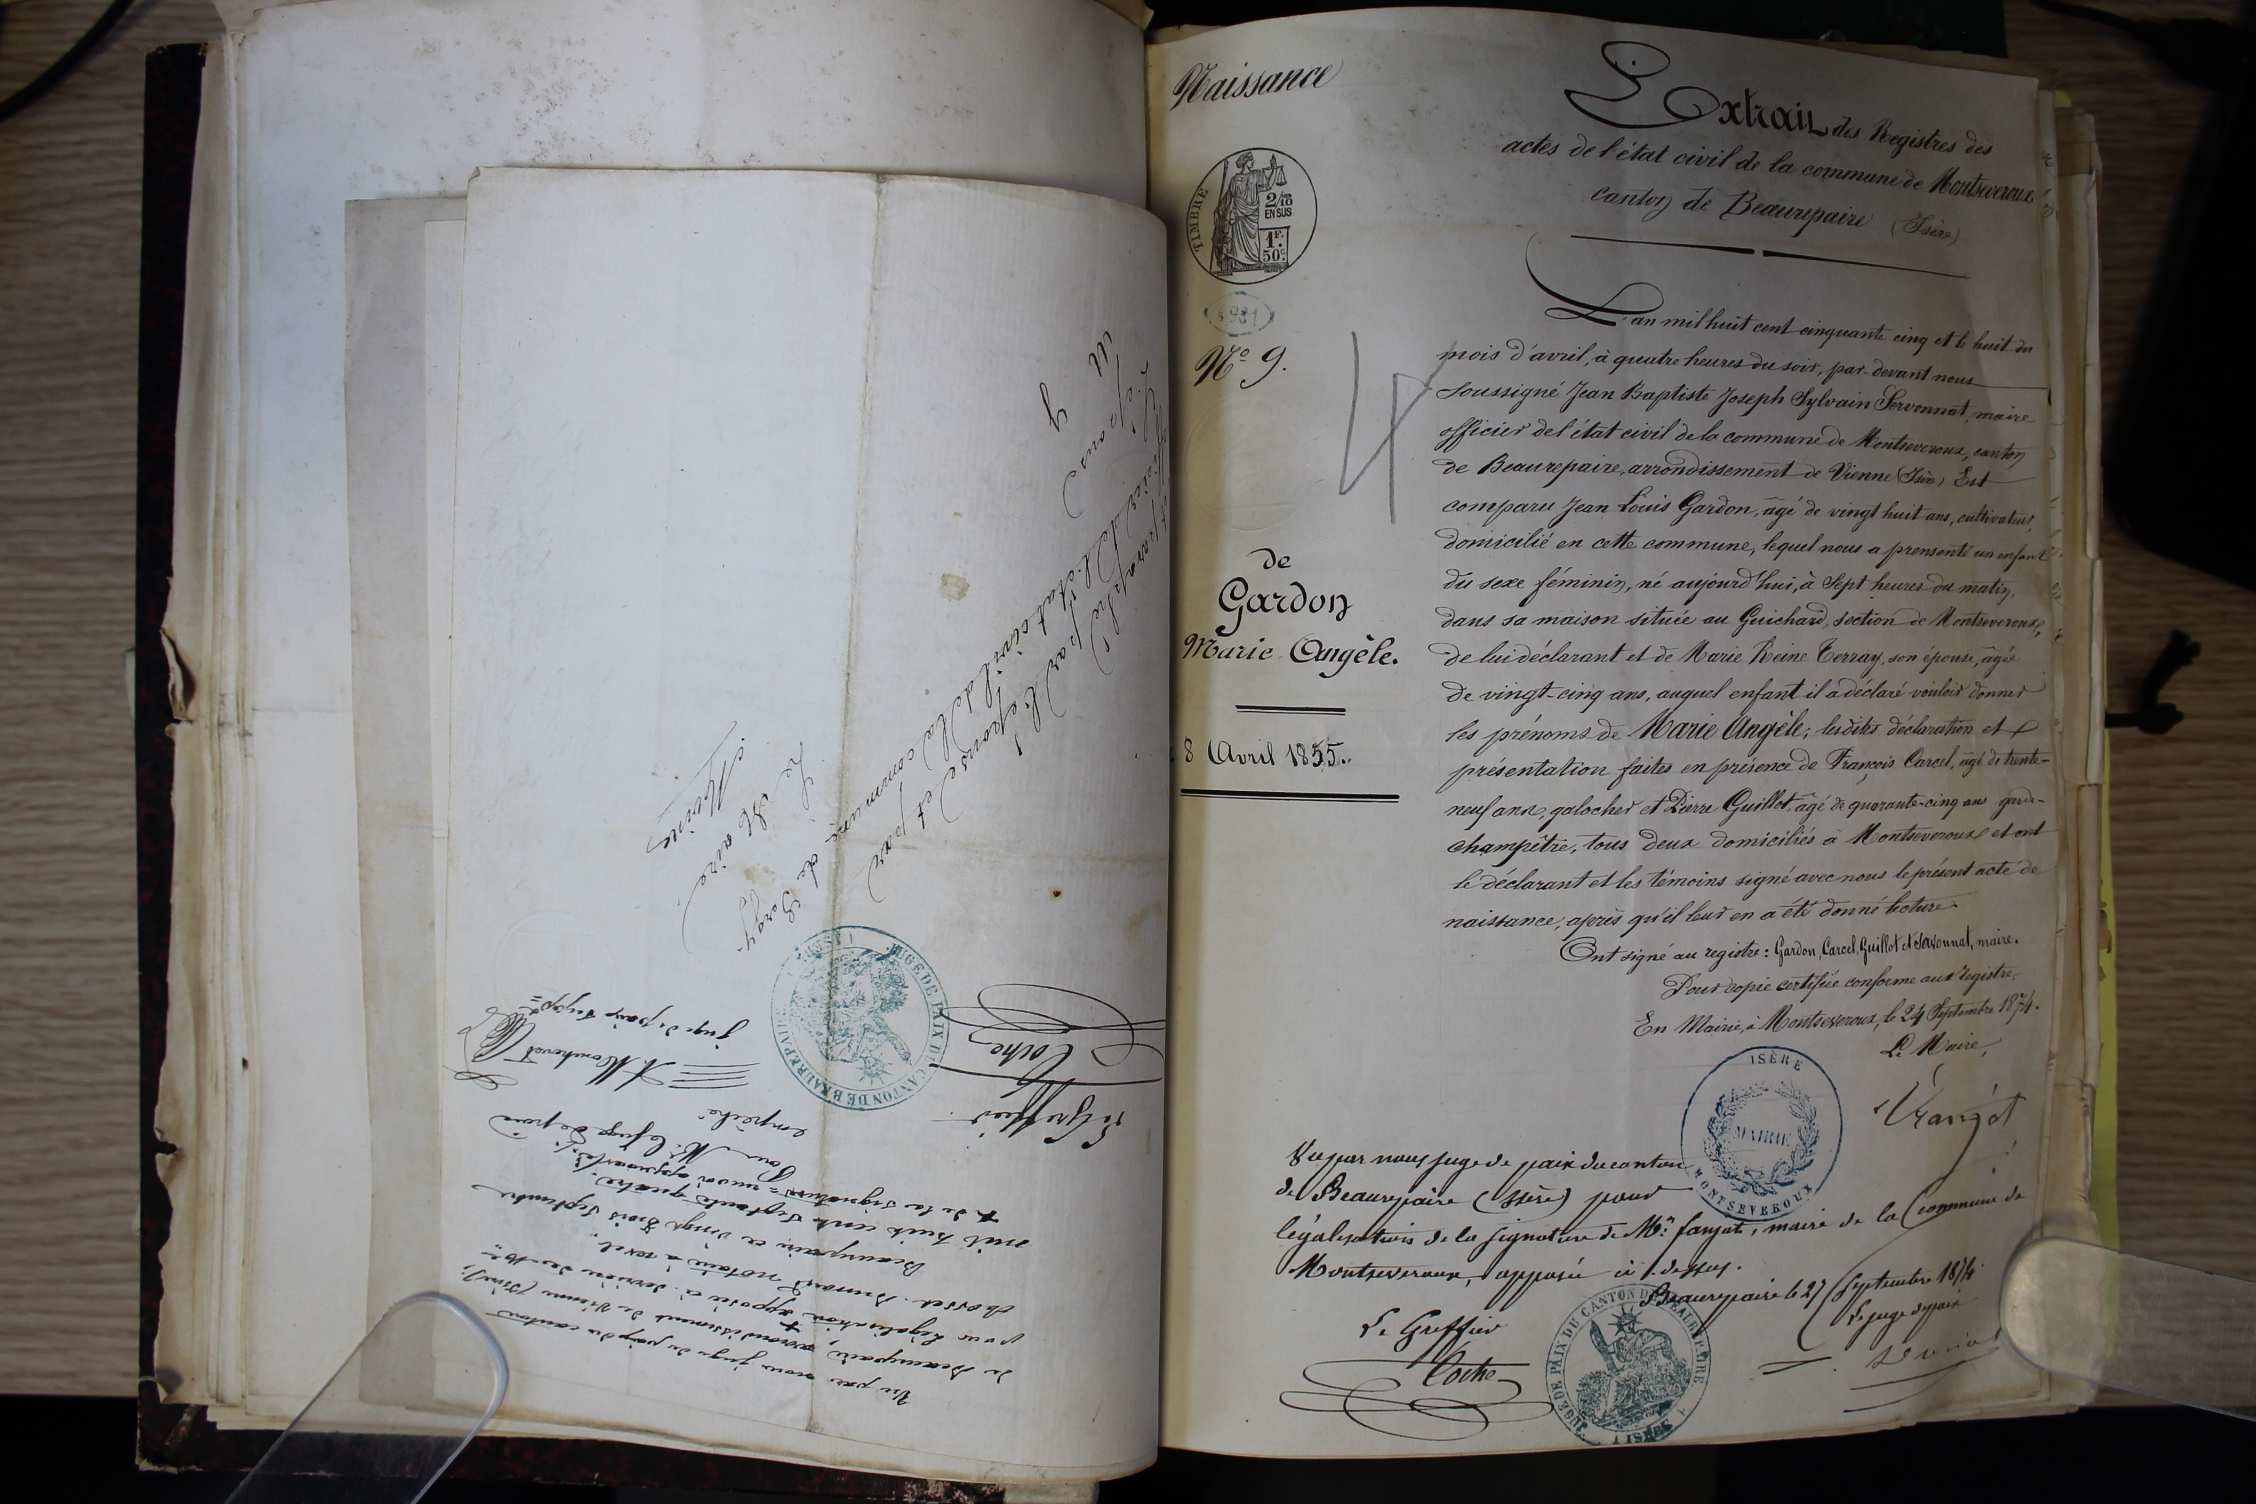 Naissance
TIMBRE
2/10
EN SUS
1F.
50c.
No 9.
de
Gardon
Marie Angèle.
8 Avril 1855.
Extrait des Registres des
actes de l'état civil de la commune de Montseveroux
canton de Beaurepaire (Isère)
L'an mil huit cent cinquante cinq et le huit du
mois d'avril, à quatre heures du soir, par-devant nous
soussigné Jean Baptiste Joseph Sylvain Servonnat, maire
officier de l'état civil de la commune de Montseveroux, canton
de Beaurepaire, arrondissement de Vienne (Isère) Est
comparu Jean Louis Gardon, âgé de vingt huit ans, cultivateur,
domicilié en cette commune, lequel nous a prensenté un enfant
du sexe féminin, né aujourd'hui, à Sept heures du matin,
dans sa maison située au Guichard, section de Montseveroux,
de lui déclarant et de Marie Reine Terray, son épouse, âgée
de vingt-cinq ans, auquel enfant il a déclaré vouloir donner
les prénoms de Marie Angèle; lesdites déclaration et
présentation faites en présence de François Carcel, âgé de trente-
neuf ans, galocher et Pierre Guillot, âgé de quarante-cinq ans garde-
champêtre, tous deux domiciliés à Montseveroux et ont
le déclarant et les témoins signé avec nous le présent acte de
naissance, après qu'il leur en a été donné lecture.
Ont signé au registre: Gardon, Carcel, Guillot et Servonnat, maire.
Pour copie certifiée conforme aux registre.
En Mairie, à Montseveroux, le 24 Septembre 1874.
Le Maire,
ISÈRE
MAIRIE
MONTSEVEROUX
Vu par nous juge de paix du canton
de Beaurepaire (Isère) pour
légalisation de la signature de Mr. fanjat, maire de la Commune de
Montseveroux, apposée ci-dessus.
Beaurepaire le 27 Septembre 1874.
Le juge de paix
Le Greffier
Coche
JUGE DE PAIX DU CANTON DE BEAUREPAIRE
(ISÈRE)
paraphé par l'épouse et par
officier de l'état civil de la commune de
Le Maire
Vu par nous juge de paix du canton
de Beaurepaire, arrondissement de Vienne (Isère),
pour légalisation apposée ci-derrière de Me
notaire à revel.
Beaurepaire ce vingt trois Septembre
mil huit cent Septante quatre.
de la signature
Pour Mr le Juge de paix
empêché
Le Greffier
Coche
juge de paix supp=
JUGE DE PAIX DU CANTON DE BEAUREPAIRE
(ISÈRE)